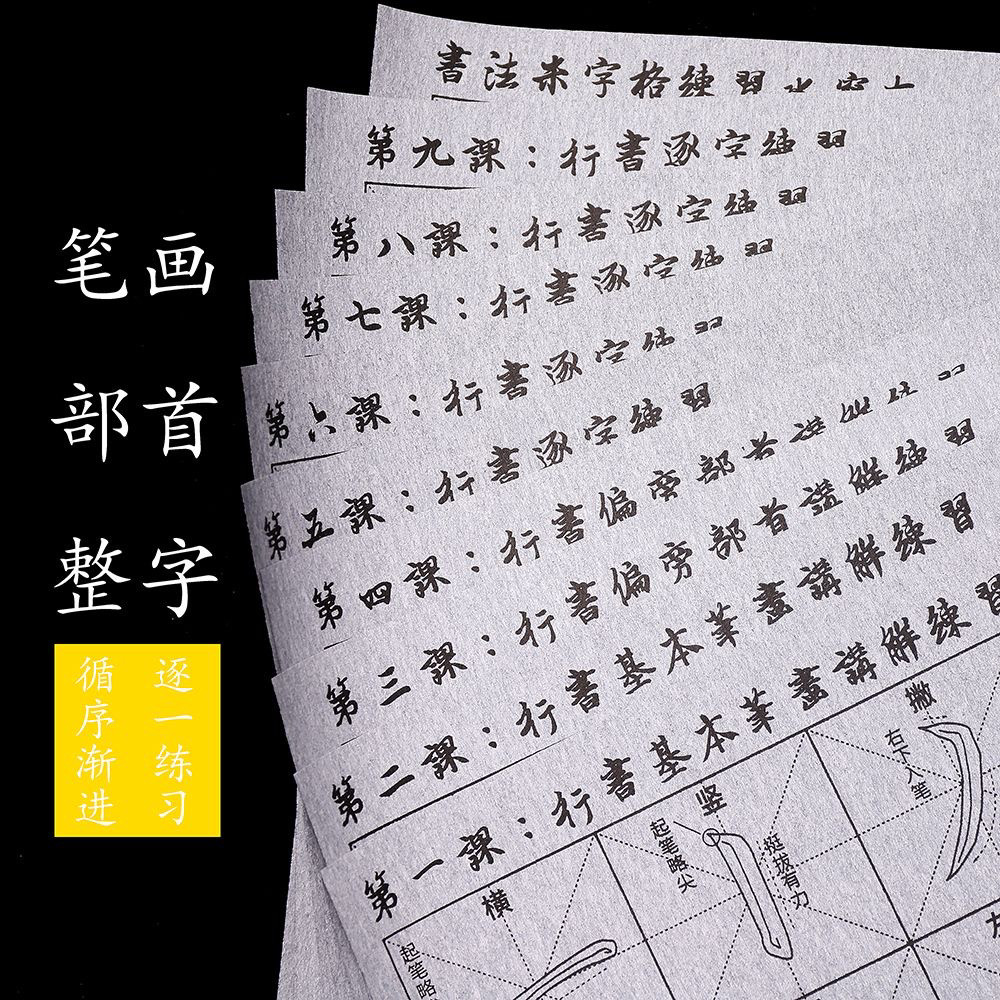 笔画
部首
整字
逐一练习
循序渐进
書法米字格練習水寫
第九課：行書逐字練習
第八課：行書逐字練習
第七課：行書逐字練習
第六課：行書逐字練習
第五課：行書逐字練習
第四課：行書偏旁部首講解練習
第三課：行書偏旁部首講解練習
第二課：行書基本筆畫講解練習
第一課：行書基本筆畫講解練習
撇
右下入笔
竖
起笔略尖
挺拔有力
横
起笔略